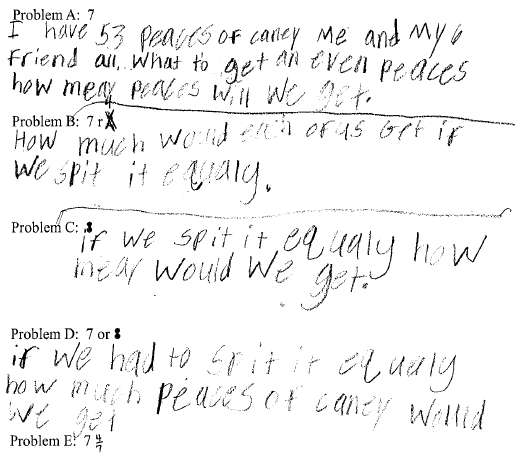 Problem A: 7
I have 53 peaces of caney Me and My 6
friend all. What to get an even peaces
how meay peaces will we get.
Problem B: 7 r
How much would each of us Get if
We spit it equaly.
Problem C: 8
if we spit it equaly how
meay would we get.
Problem D: 7 or 8
if we had to spit it equaly
how much peaces of caney wolld
we get
Problem E: 7 4/7